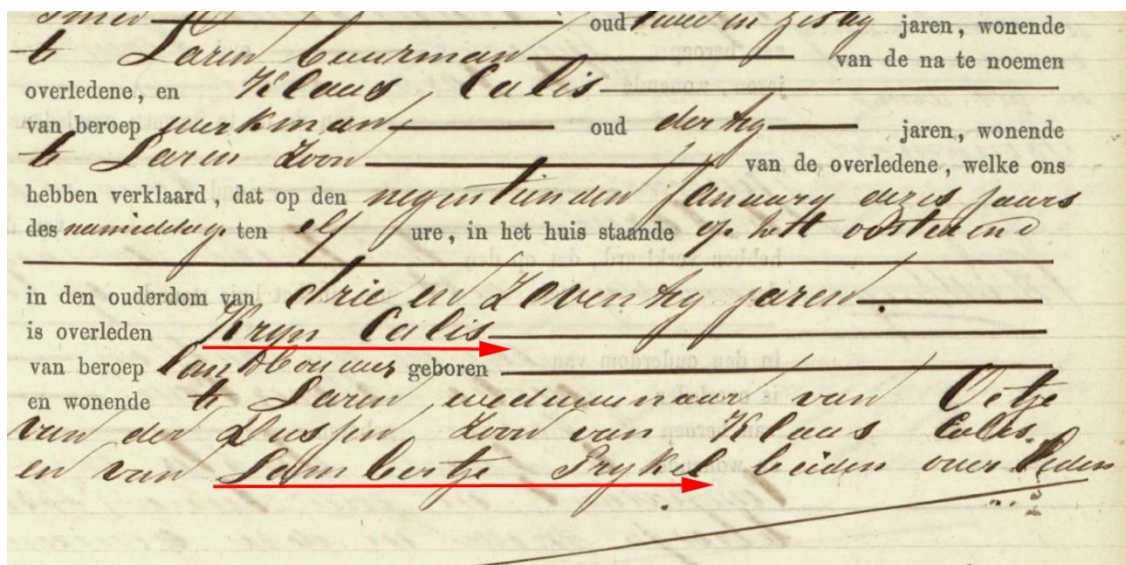 oud twee en zestig jaren, wonende
te Laren buurman van de na te noemen
overledene, en Klaas Calis
van beroep werkman oud dertig jaren, wonende
te Laren zoon van de overledene, welke ons
hebben verklaard, dat op den negentienden January dezes jaars
des namiddags ten elf ure, in het huis staande op het oosteend
in den ouderdom van drie en zeventig jaren
is overleden Kryn Calis
van beroep landbouwer geboren
en wonende te Laren weduwnaar van
van der zoon van Klaas Calis
en van Lambertje Prykel beiden overleden